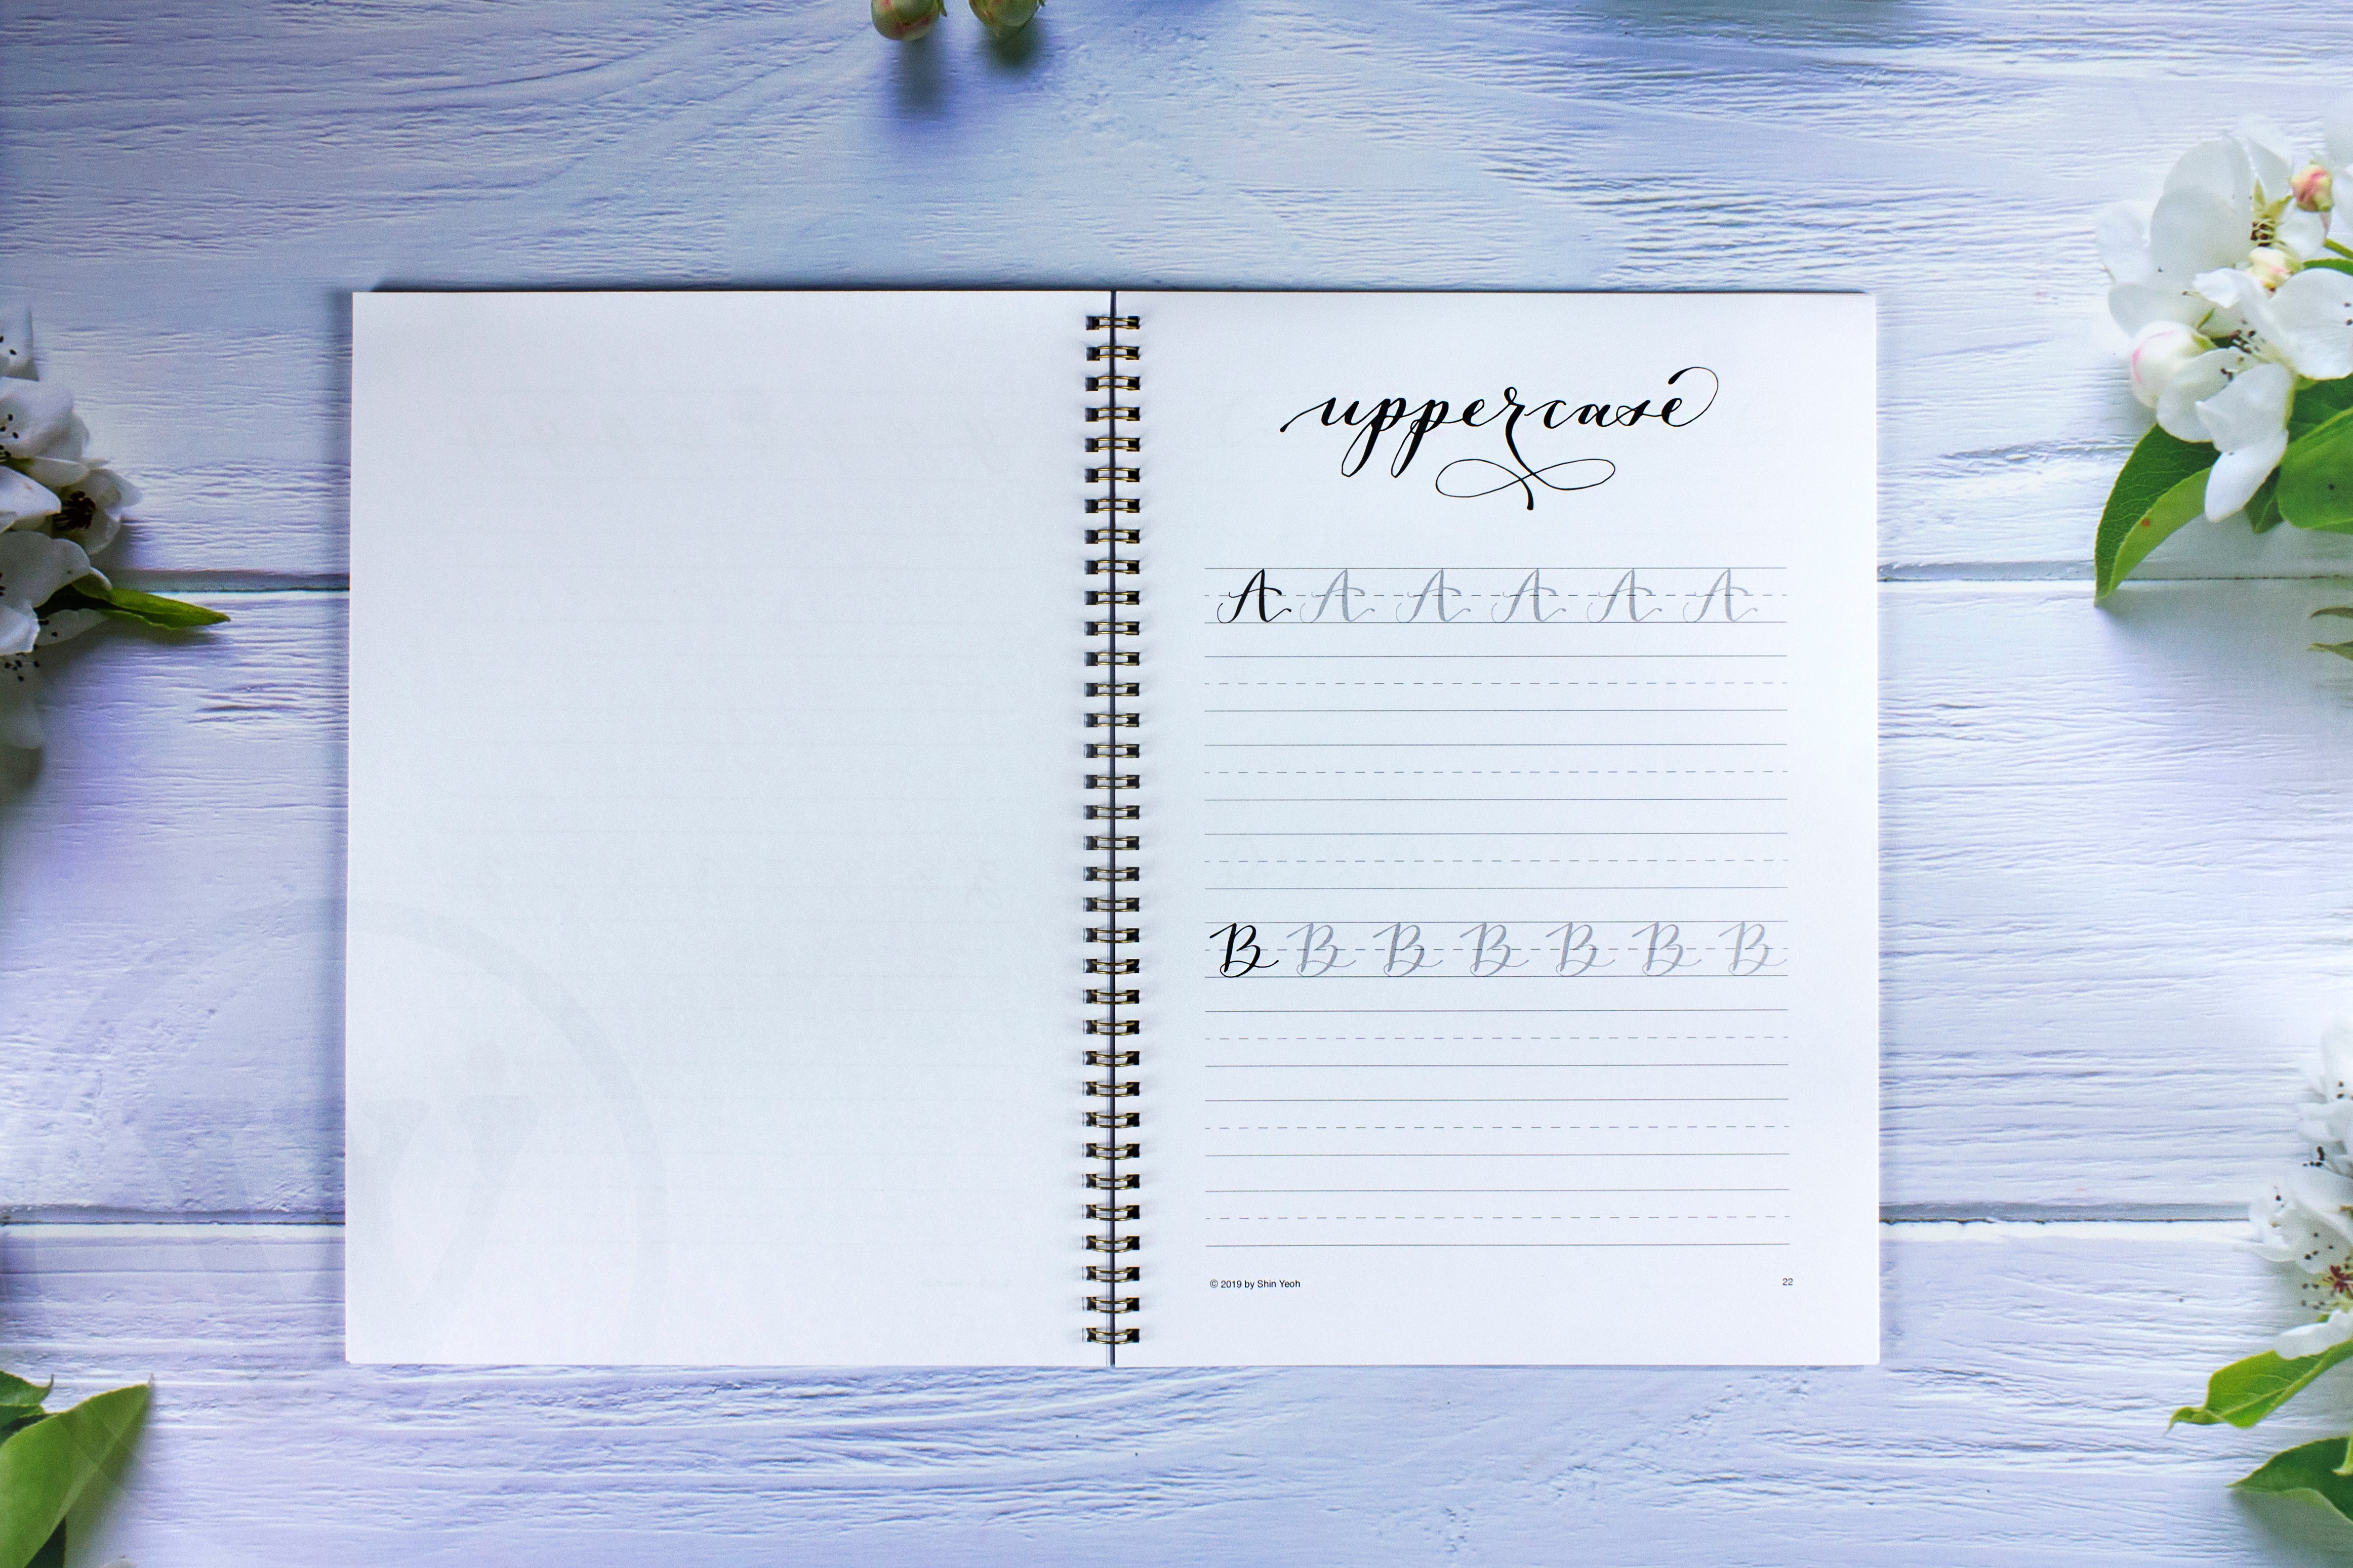 uppercase
A A A A A A
B B B B B B B
© 2019 by Shin Yeoh
22